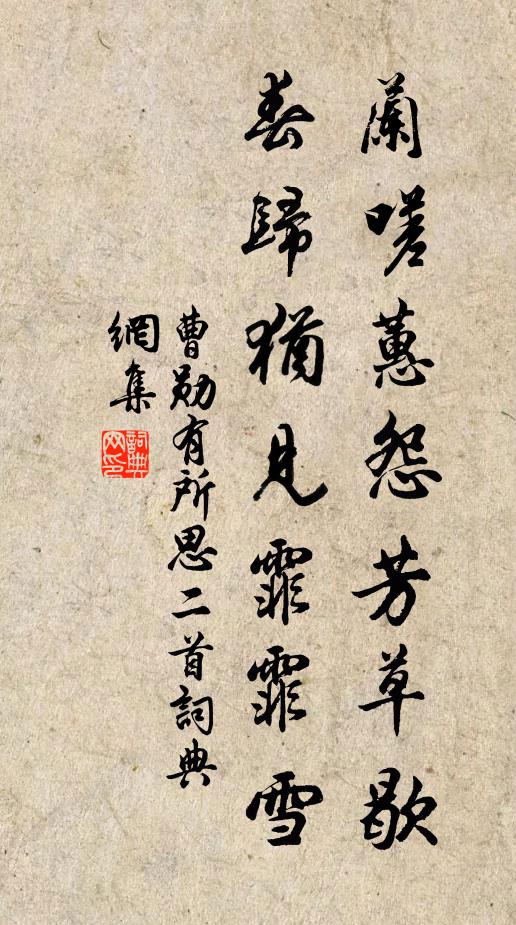 蘭嗟蕙怨芳草歇
春歸猶見霏霏雪
曹勛有所思二首詞典
網集
詞典网印